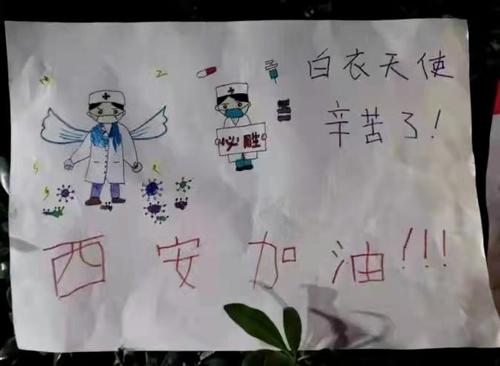 白衣天使
辛苦了！
必胜
西安加油!!!